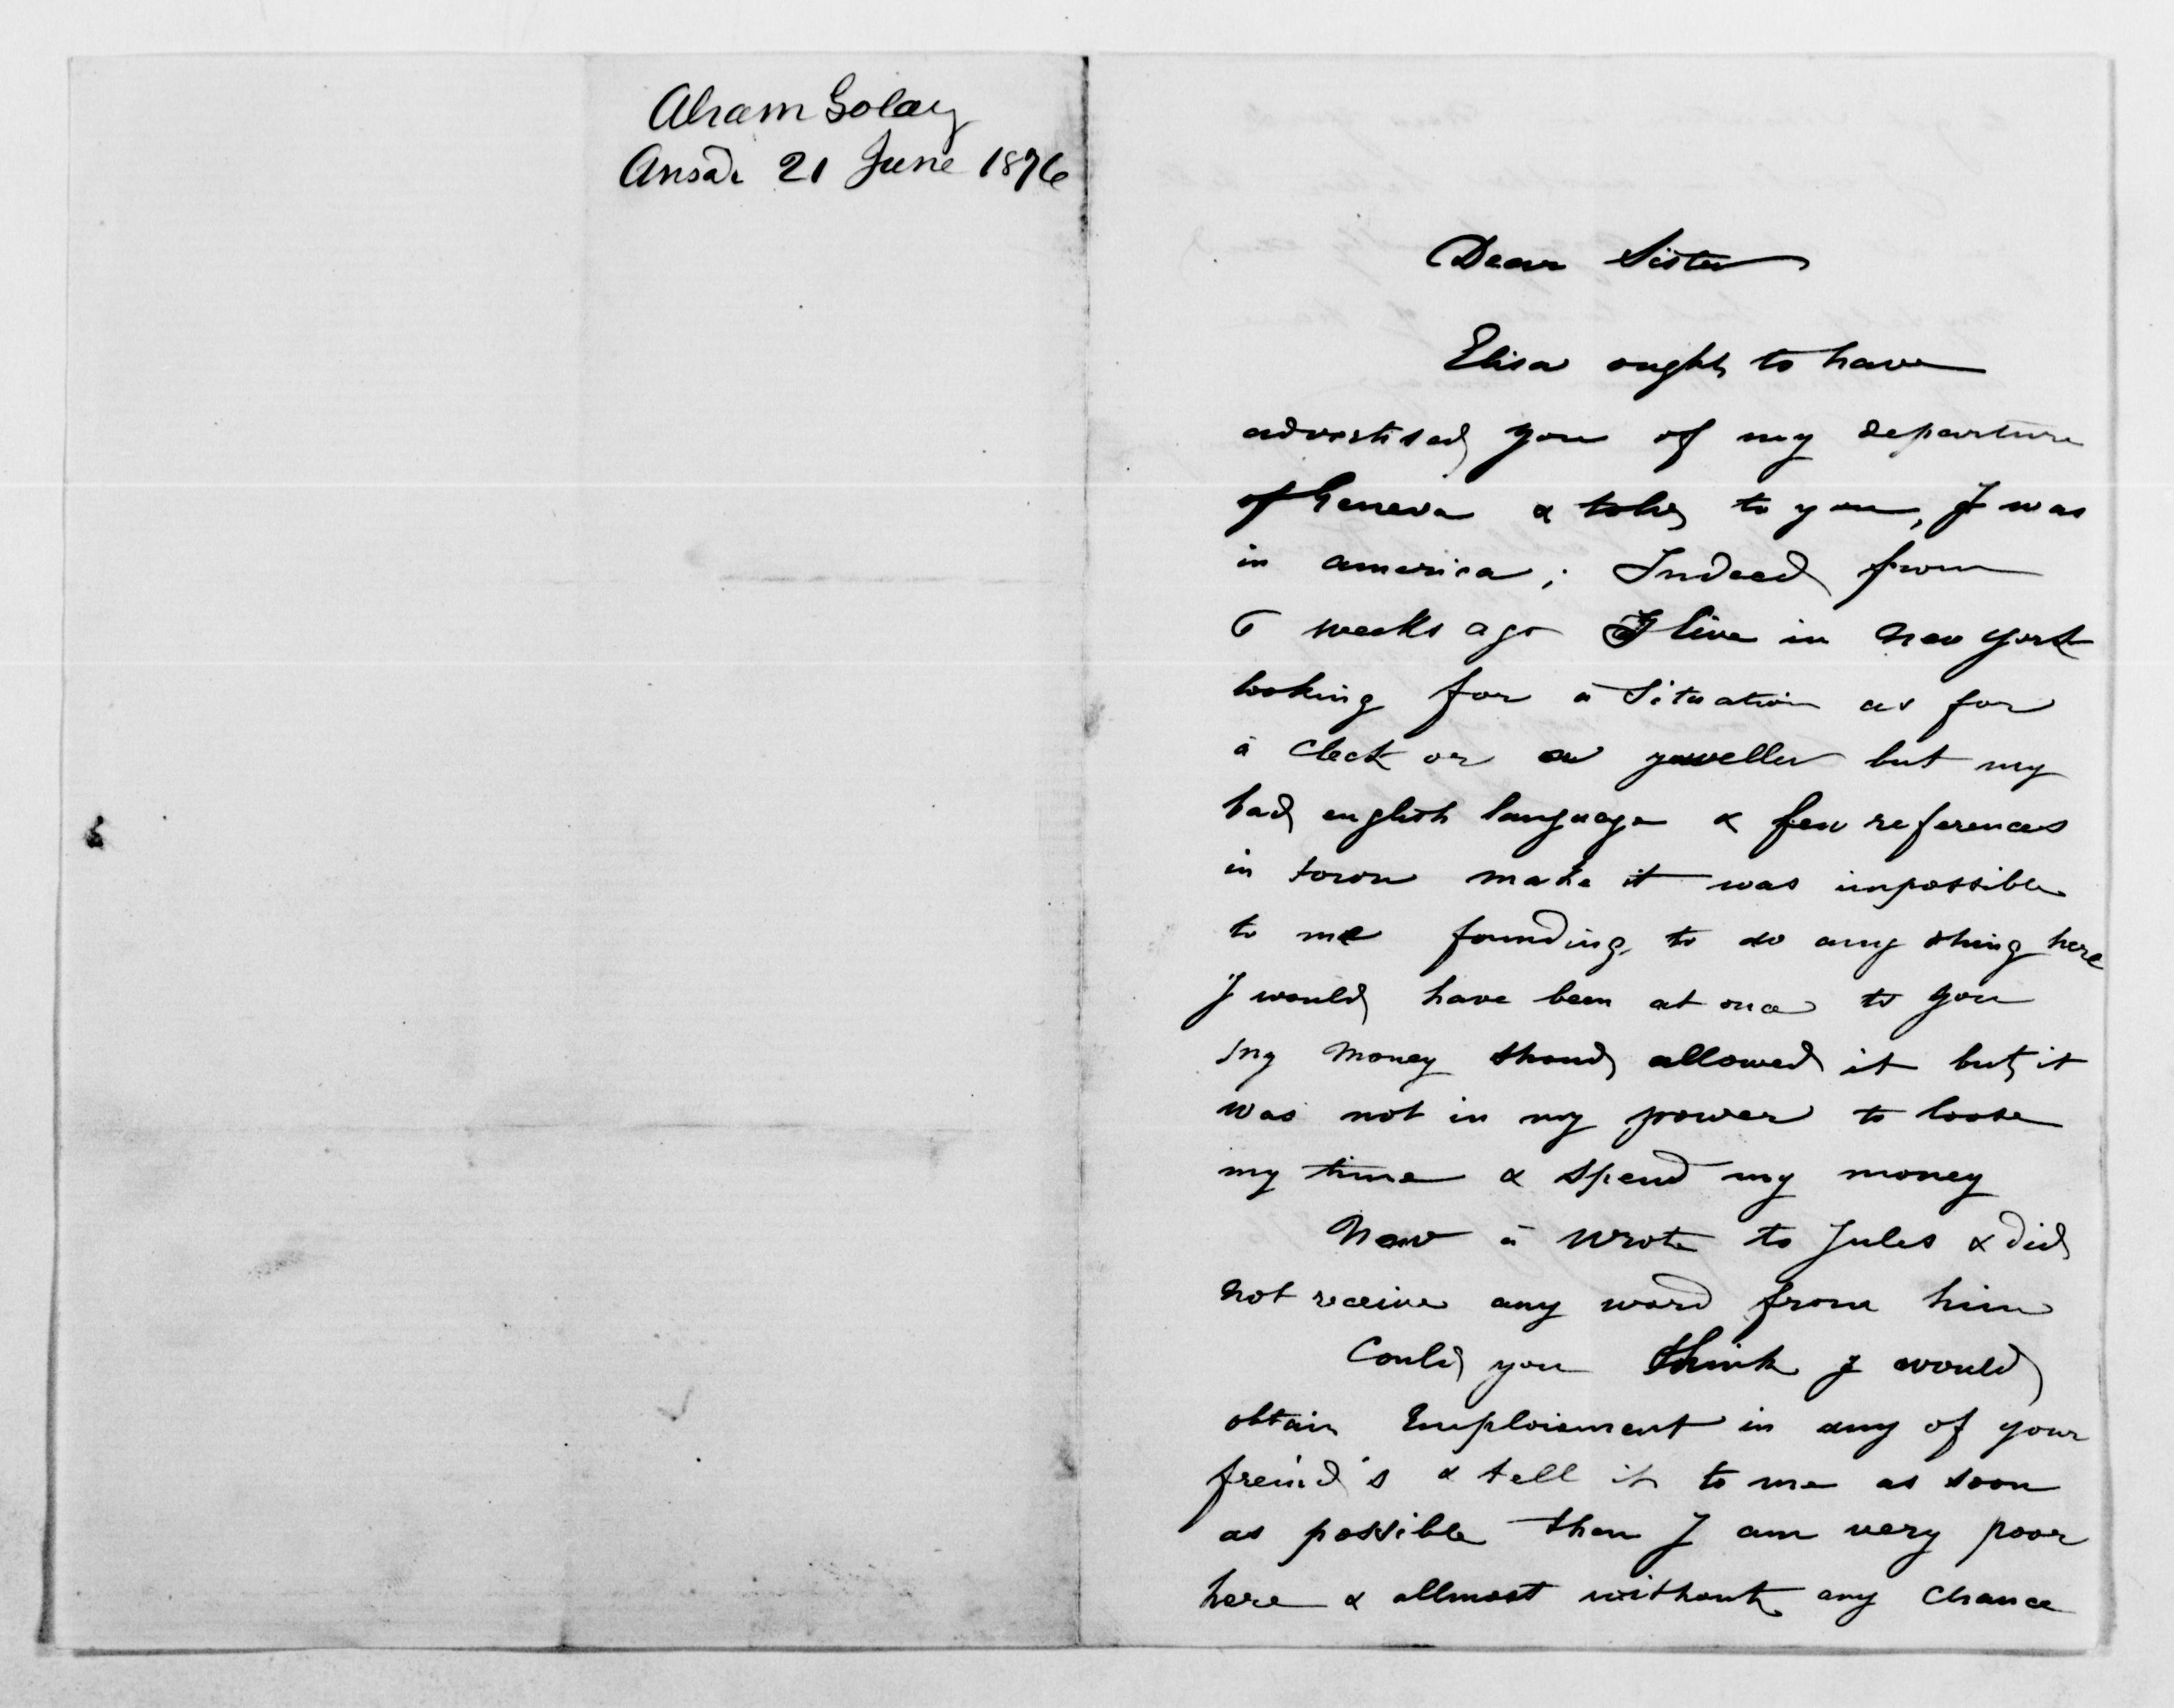 Abram Golay
Ansd. 21 June 1876
Dear Sister
Elisa ought to have
advertised you of my departure
of Geneva & told to you, I was
in america; Indeed from
6 weeks ago I live in New york
looking for a Situation as for
a Cleck or a yeweller but my
bad english language & few references
in town make it was impossible
to me founding to do any thing here
I would have been at once to you
my money shoud allowed it but it
was not in my power to loose
my time & spend my money
Now a wrote to Jules & did
not receive any word from him
Could you think I would
obtain Emploiement in any of your
freind's & tell it to me as soon
as possible then I am very poor
here & allmost without any chance